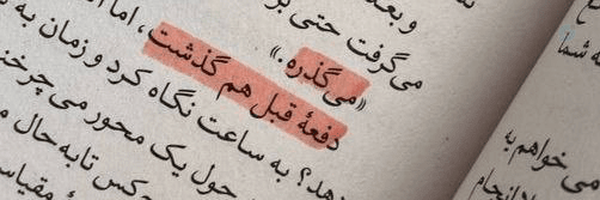 و بعد
می‌گرفت حتی بر
«می‌گذره.»
دفعهٔ قبل هم گذشت، اما
نگاه کرد و زمان به
دهد؟ به ساعت
حول یک محور می‌چرخد
عکس تا به حال
مقیاس
ه شما
می‌خواهم به
انجام